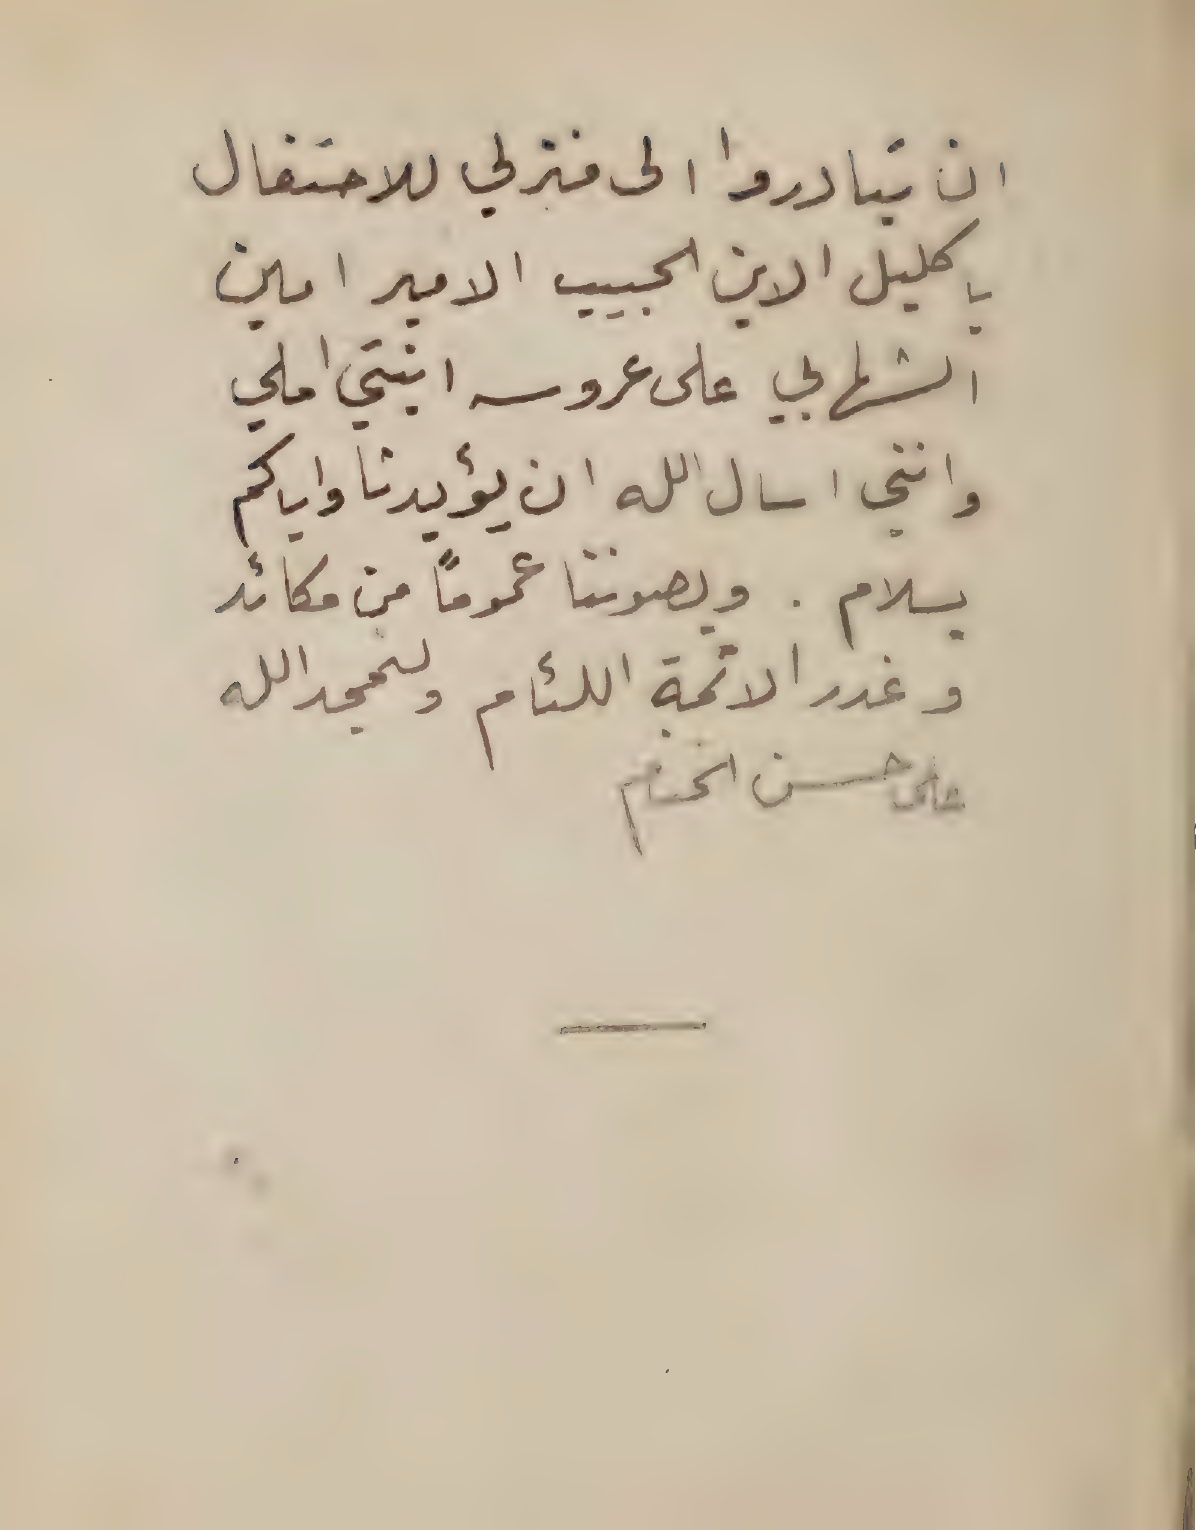 ان تتبادروا الى منزلي للاحتفال
باكليل الابن الحبيب الامير امين
الشهابي على عروسه ابنتي املي
وانني اسال الله ان يؤيدنا واياكم
بسلام . ويصوننا عموماً من مكائد
وغدر الائمة اللئام ولنمجد الله
على حسن الختام